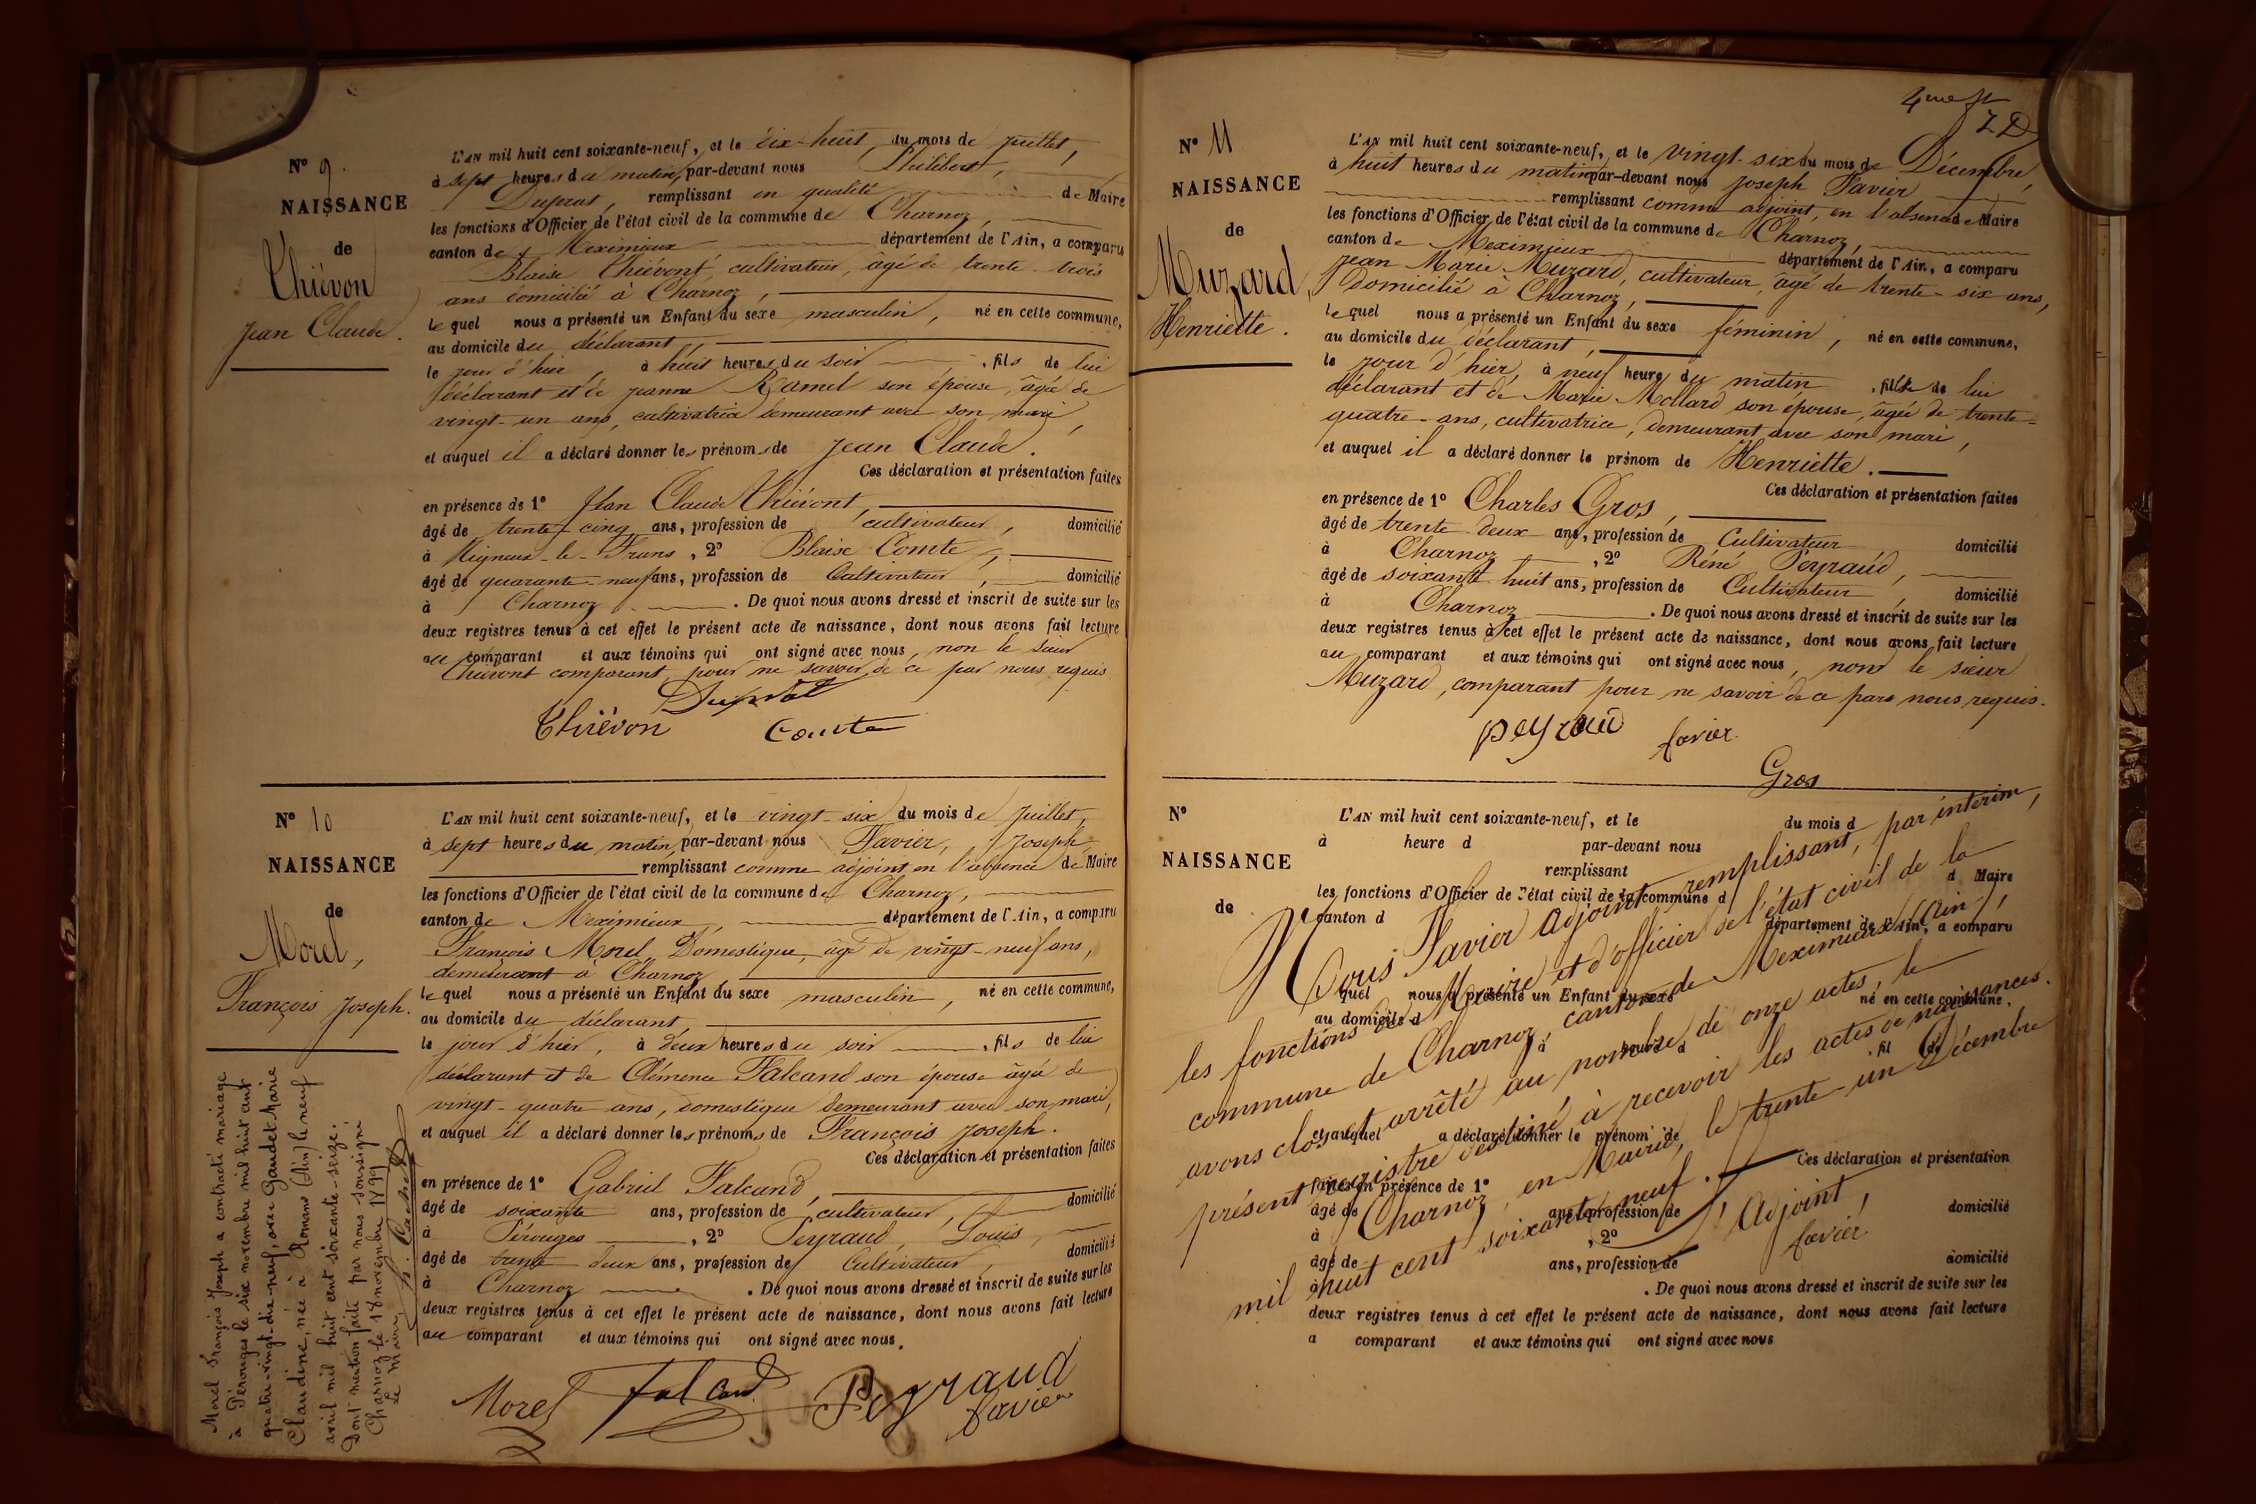 N° 9.
NAISSANCE
de
Thiévon
Jean Claude.
L'AN mil huit cent soixante-neuf, et le dix-huit du mois de juillet,
à sept heures du matin, par-devant nous Philibert,
Duprat, remplissant en qualité de Maire
les fonctions d'Officier de l'état civil de la commune de Charnoz,
canton de Meximieux département de l'Ain, a comparu
Blaise Thiévont, cultivateur, âgé de trente-trois
ans domicilié à Charnoz,
lequel nous a présenté un Enfant du sexe masculin, né en cette commune,
au domicile du déclarant,
le jour d'hier, à huit heures du soir, fils de lui
déclarant et de jeanne Ramel son épouse, âgée de
vingt-un ans, cultivatrice demeurant avec son mari,
et auquel il a déclaré donner les prénoms de Jean Claude.
Ces déclaration et présentation faites
en présence de 1° Jean Claude Thiévont,
âgé de trente-cinq ans, profession de cultivateur, domicilié
à Rigneux-le-Franc, 2° Blaise Comte,
âgé de quarante-neuf ans, profession de Cultivateur, domicilié
à Charnoz. De quoi nous avons dressé et inscrit de suite sur les
deux registres tenus à cet effet le présent acte de naissance, dont nous avons fait lecture
au comparant et aux témoins qui ont signé avec nous, non le sieur
Thiévont comparant, pour ne savoir de ce par nous requis
Duprat
Thiévon Comte
N° 10
NAISSANCE
de
Morel,
François Joseph.
L'AN mil huit cent soixante-neuf, et le vingt-six du mois de juillet,
à sept heures du matin, par-devant nous Favier, Joseph,
remplissant comme adjoint en l'absence de Maire
les fonctions d'Officier de l'état civil de la commune de Charnoz,
canton de Meximieux, département de l'Ain, a comparu
François Morel, Domestique, âgé de vingt-neuf ans,
demeurant à Charnoz
lequel nous a présenté un Enfant du sexe masculin, né en cette commune,
au domicile du déclarant,
le jour d'hier, à deux heures du soir, fils de lui
déclarant et de Clémence Falcand son épouse âgée de
vingt-quatre ans, domestique demeurant avec son mari,
et auquel il a déclaré donner les prénoms de François Joseph.
Ces déclaration et présentation faites
en présence de 1° Gabriel Falcand,
âgé de soixante ans, profession de cultivateur, domicilié
à Pérouges, 2° Peyraud, Louis,
âgé de trente deux ans, profession de Cultivateur, domicilié
à Charnoz. De quoi nous avons dressé et inscrit de suite sur les
deux registres tenus à cet effet le présent acte de naissance, dont nous avons fait lecture
au comparant et aux témoins qui ont signé avec nous.
Morel falcand Peyraud
favier
Morel François Joseph a contracté mariage
à Pérouges le six novembre mil huit cent
quatre-vingt-dix-neuf, avec Gaudet Marie
Claudine, née à Romans (Ain) le neuf
avril mil huit cent soixante-seize.
Dont mention faite par nous soussigné
Charnoz le 18 novembre 1899
Le Maire,
4me ft
N° 11
NAISSANCE
de
Muzard,
Henriette.
L'AN mil huit cent soixante-neuf, et le vingt-six du mois de Décembre,
à huit heures du matin par-devant nous Joseph Favier
remplissant comme adjoint, en l'absence de Maire
les fonctions d'Officier de l'état civil de la commune de Charnoz,
canton de Meximieux département de l'Ain, a comparu
Jean Marie Muzard, cultivateur, âgé de trente-six ans,
domicilié à Charnoz,
lequel nous a présenté un Enfant du sexe féminin, né en cette commune,
au domicile du déclarant,
le jour d'hier, à neuf heures du matin, fille de lui
déclarant et de Marie Mollard son épouse, âgée de trente-
quatre-ans, cultivatrice, demeurant avec son mari,
et auquel il a déclaré donner le prénom de Henriette.
Ces déclaration et présentation faites
en présence de 1° Charles Gros,
âgé de trente deux ans, profession de Cultivateur domicilié
à Charnoz, 2° Réné Peyraud,
âgé de soixante huit ans, profession de Cultivateur, domicilié
à Charnoz. De quoi nous avons dressé et inscrit de suite sur les
deux registres tenus à cet effet le présent acte de naissance, dont nous avons fait lecture
au comparant et aux témoins qui ont signé avec nous, non le sieur
Muzard, comparant pour ne savoir de ce par nous requis.
peyraud favier
Gros
N°
NAISSANCE
de
L'AN mil huit cent soixante-neuf, et le du mois d
à heure d par-devant nous
remplissant d Maire
les fonctions d'Officier de l'état civil de la commune d
canton d département de l'Ain, a comparu
quel nous a présenté un Enfant du sexe né en cette commune,
au domicile d
à heure d , fil de
et auquel a déclaré donner le prénom de
Ces déclaration et présentation
faites en présence de 1°
âgé de ans, profession de domicilié
à , 2°
âgé de ans, profession de domicilié
à . De quoi nous avons dressé et inscrit de suite sur les
deux registres tenus à cet effet le présent acte de naissance, dont nous avons fait lecture
a comparant et aux témoins qui ont signé avec nous
Nous Favier adjoint, remplissant, par intérim,
les fonctions de Maire et d'officier de l'état civil de la
commune de Charnoz, canton de Meximieux (Ain),
avons clos et arrêté au nombre de onze actes, le
présent registre destiné à recevoir les actes de naissances.
Charnoz, en Mairie, le trente-un Décembre
mil huit cent soixante neuf.
l'Adjoint,
favier